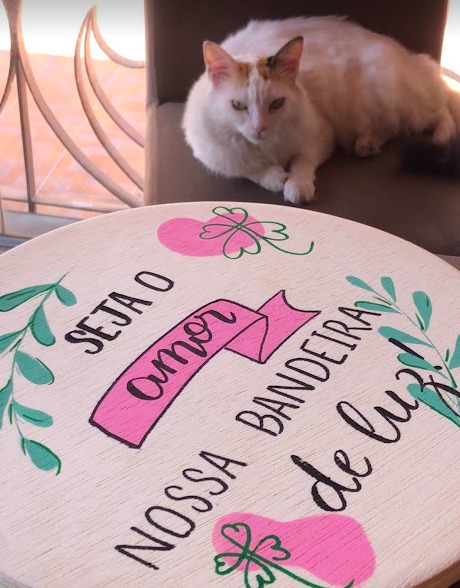 SEJA O
amor
NOSSA BANDEIRA
de luz!